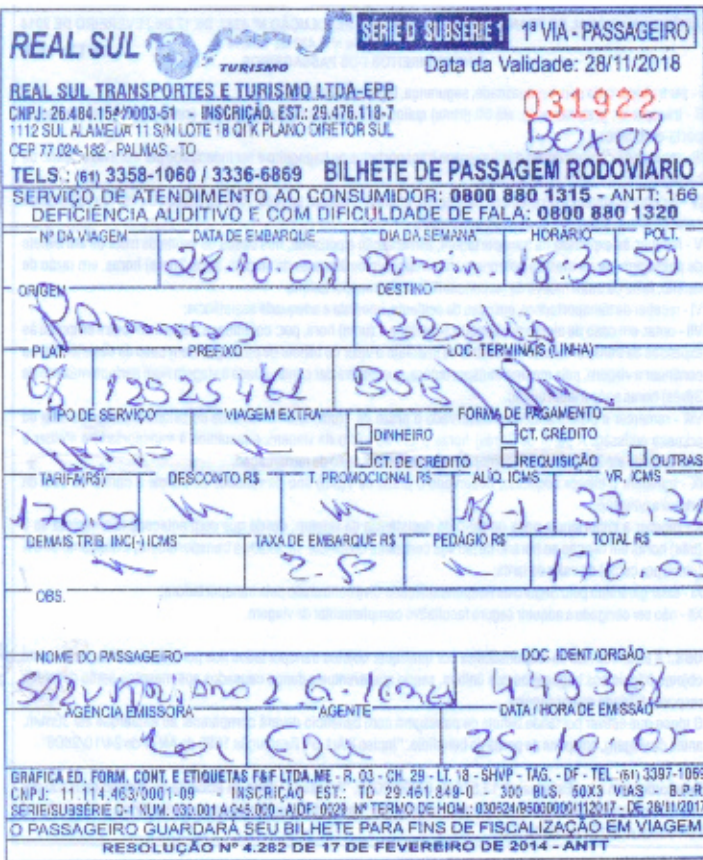 REAL SUL TURISMO
SÉRIE D SUBSÉRIE 1 1ª VIA - PASSAGEIRO
Data da Validade: 28/11/2018
REAL SUL TRANSPORTES E TURISMO LTDA-EPP
031922
INSCRIÇÃO. EST.: 29.476.118-7
Box 08
1112 SUL ALAMEDA 11 S/N LOTE 18 QI K PLANO DIRETOR SUL
CEP 77.024-182 - PALMAS - TO
TELS.: (61) 3358-1060 / 3336-6869 BILHETE DE PASSAGEM RODOVIÁRIO
SERVIÇO DE ATENDIMENTO AO CONSUMIDOR: 0800 880 1315 - ANTT: 166
DEFICIÊNCIA AUDITIVO E COM DIFICULDADE DE FALA: 0800 880 1320
Nº DA VIAGEM DATA DE EMBARQUE DIA DA SEMANA HORÁRIO POLT.
28-10-018 Dom. 18:30 59
ORIGEM DESTINO
Palmas Brasília
PLAT. PREFIXO LOC. TERMINAIS (LINHA)
08 12525461 BSB
TIPO DE SERVIÇO VIAGEM EXTRA FORMA DE PAGAMENTO
DINHEIRO CT. CRÉDITO
CT. DE CRÉDITO REQUISIÇÃO OUTRAS
TARIFA(R$) DESCONTO R$ P. T. PROMOCIONAL R$ ALÍQ. ICMS VR. ICMS
170.00 18-1 32-31
DEMAIS TRIB. INC(-) ICMS TAXA DE EMBARQUE R$ PEDÁGIO R$ TOTAL R$
2-50 170.00
OBS.
NOME DO PASSAGEIRO DOC. IDENT./ORGÃO
449368
AGÊNCIA EMISSORA AGENTE DATA / HORA DE EMISSÃO
Edu 25-10-05
GRÁFICA ED. FORM. CONT. E ETIQUETAS F&F LTDA.ME - R. 03 - CH. 29 - LT. 18 - SHVP - TAG. - DF - TEL.:(61) 3397-1059
CNPJ: 11.114.463/0001-09 - INSCRIÇÃO EST.: TO 29.461.849-0 - 300 BLS. 50X3 VIAS - B.P.R.
SÉRIE/SUBSÉRIE D-1 NUM. 030.001 A 045.000 - AIDF: 0029 Nº TERMO DE HOM.: 030624/95000000/112017 - DE 28/11/2017
O PASSAGEIRO GUARDARÁ SEU BILHETE PARA FINS DE FISCALIZAÇÃO EM VIAGEM
RESOLUÇÃO Nº 4.282 DE 17 DE FEVEREIRO DE 2014 - ANTT